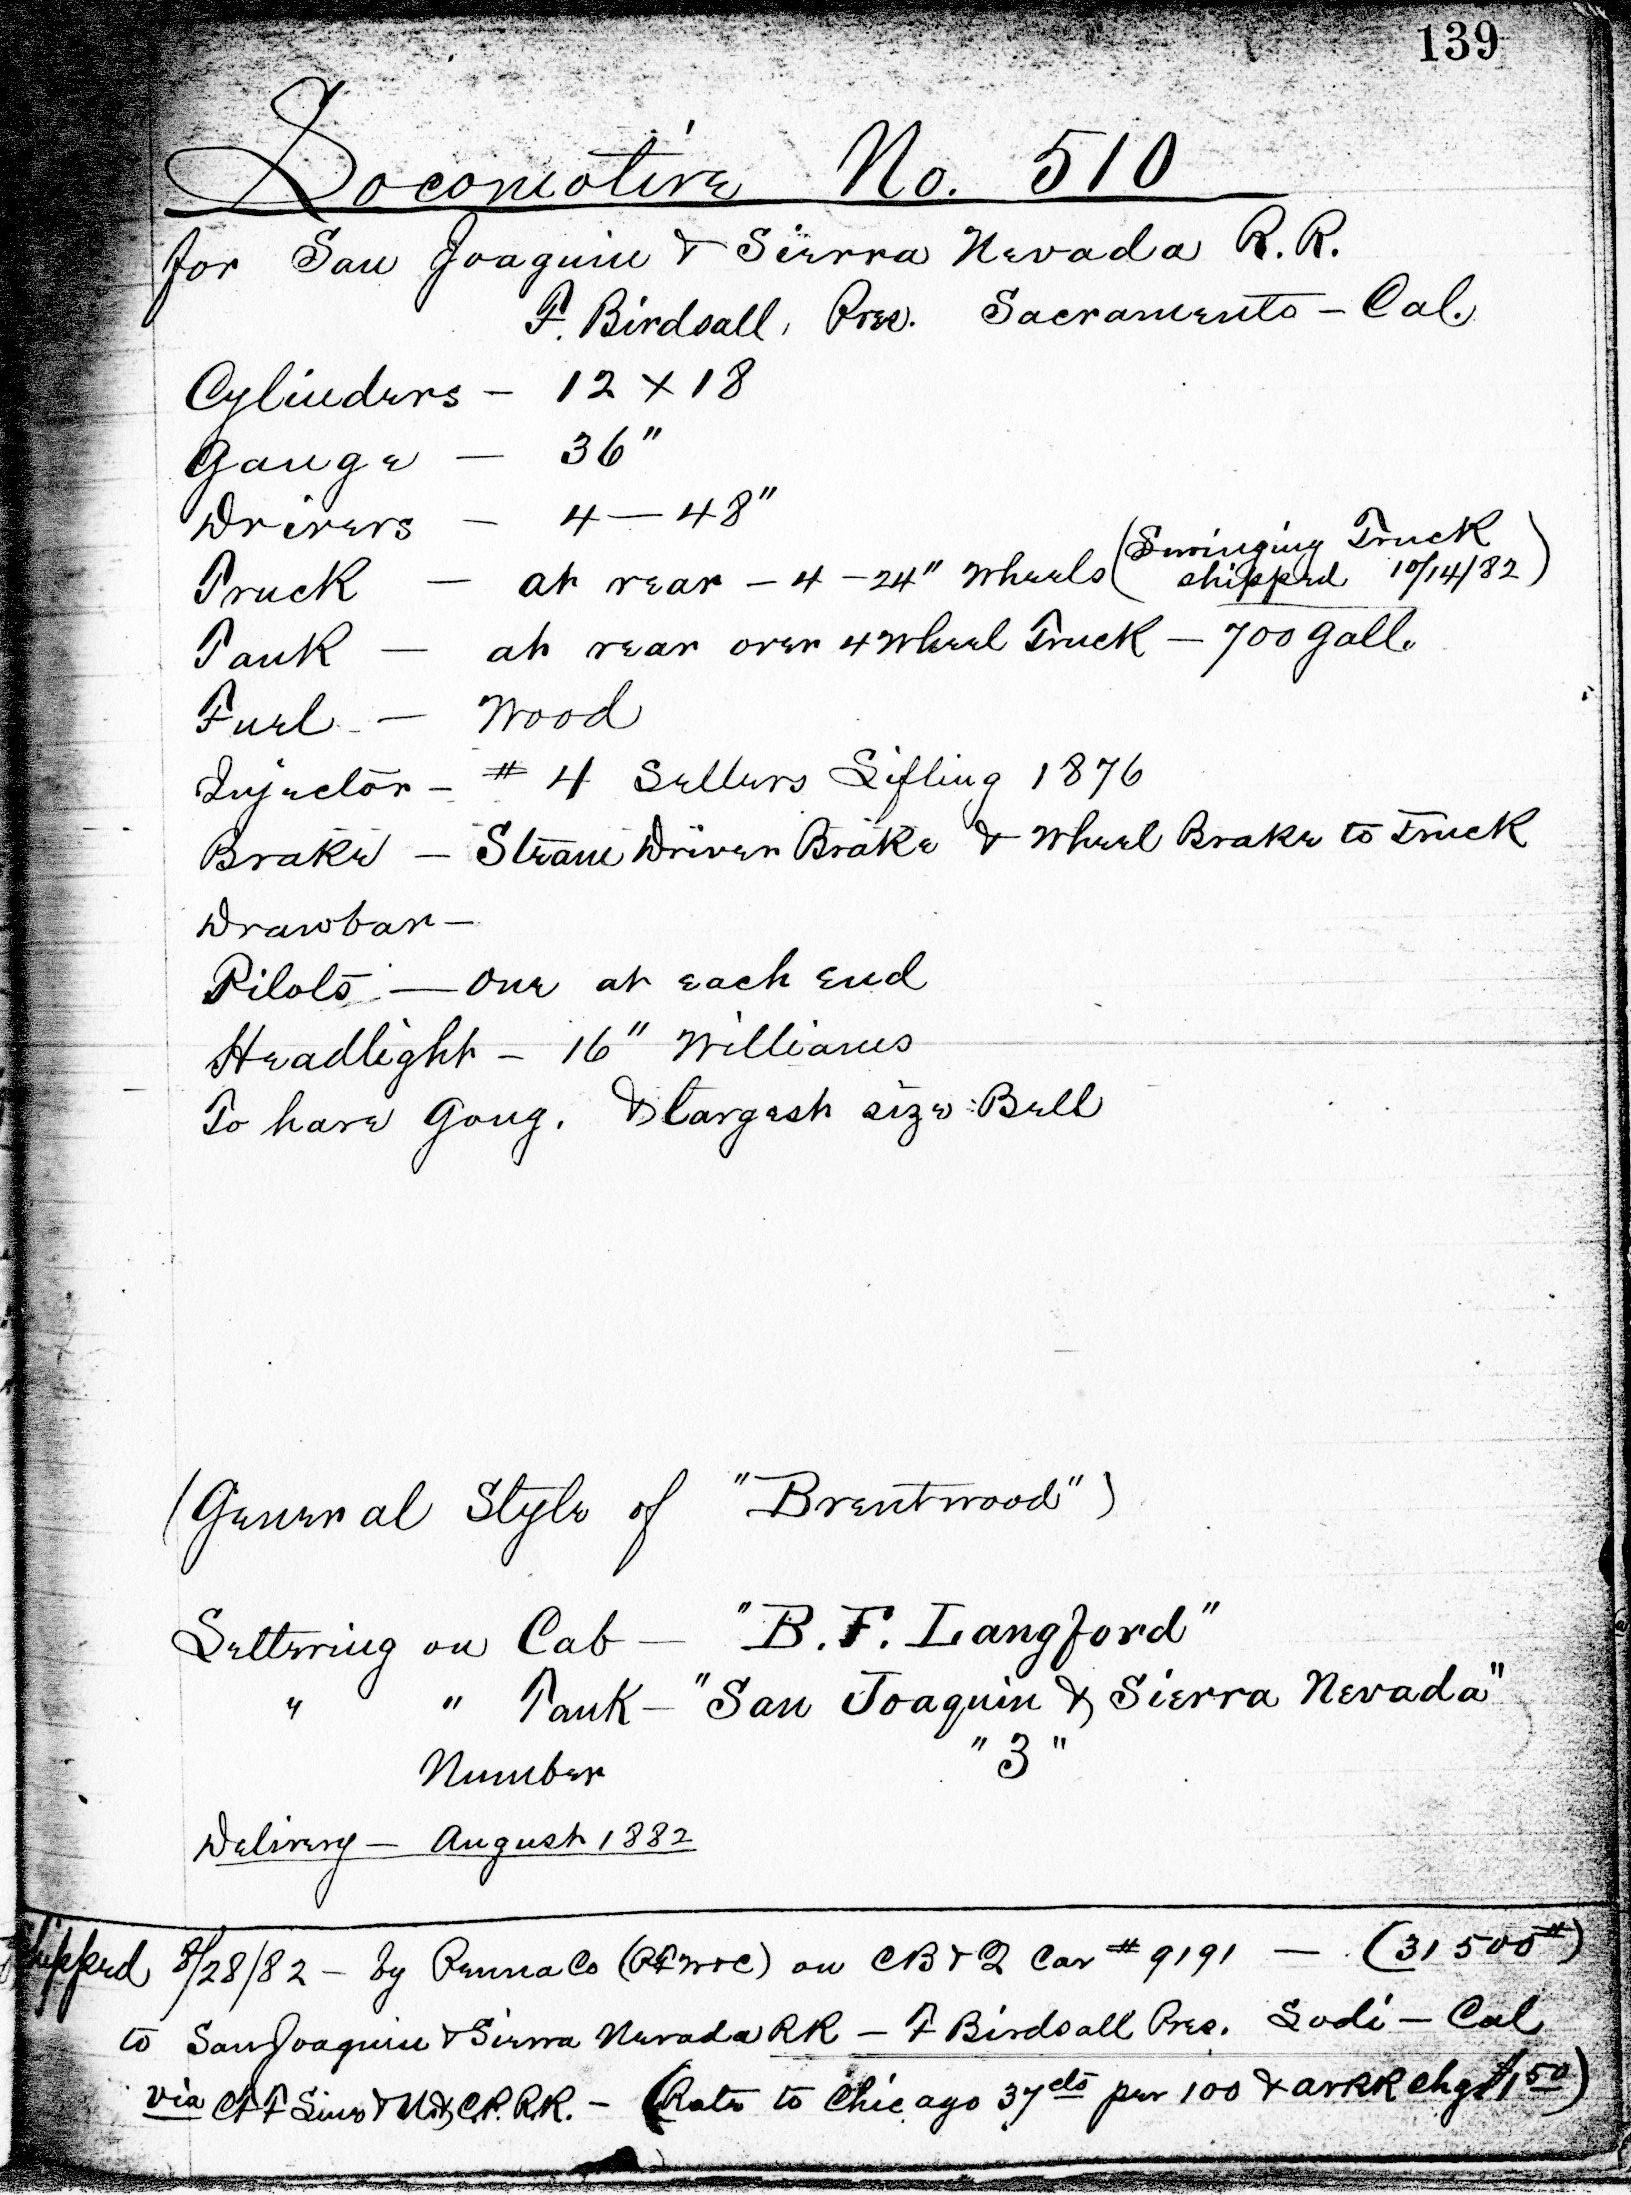 139
Locomotive No. 510
for San Joaquin & Sierra Nevada R.R.
F. Birdsall, Pres. Sacramento – Cal.
Cylinders – 12 x 18
Gauge – 36"
Drivers – 4 – 48"
Truck – at rear – 4 – 24" Wheels (Swinging Truck
shipped 10/14/82)
Tank – at rear over 4 Wheel Truck – 700 Gall.
Fuel – Wood
Injector – # 4 Sellers Lifting 1876
Brake – Steam Driver Brake & Wheel Brake to Truck
Drawbar –
Pilots – One at each end
Headlight – 16" Williams
To have Gong. & largest size Bell
(General Style of "Brentwood")
Lettering on Cab – "B. F. Langford"
" " Tank – "San Joaquin & Sierra Nevada"
Number "3"
Delivery – August 1882
Shipped 8/28/82 – by Penna Co (PFW&C) on CB&Q Car # 9191 – (31500#)
to San Joaquin & Sierra Nevada RR – F Birdsall Pres. Lodi – Cal
via Line & C.P. R.R. – (Rate to Chicago 37 cts per 100 & chgs $1 50)